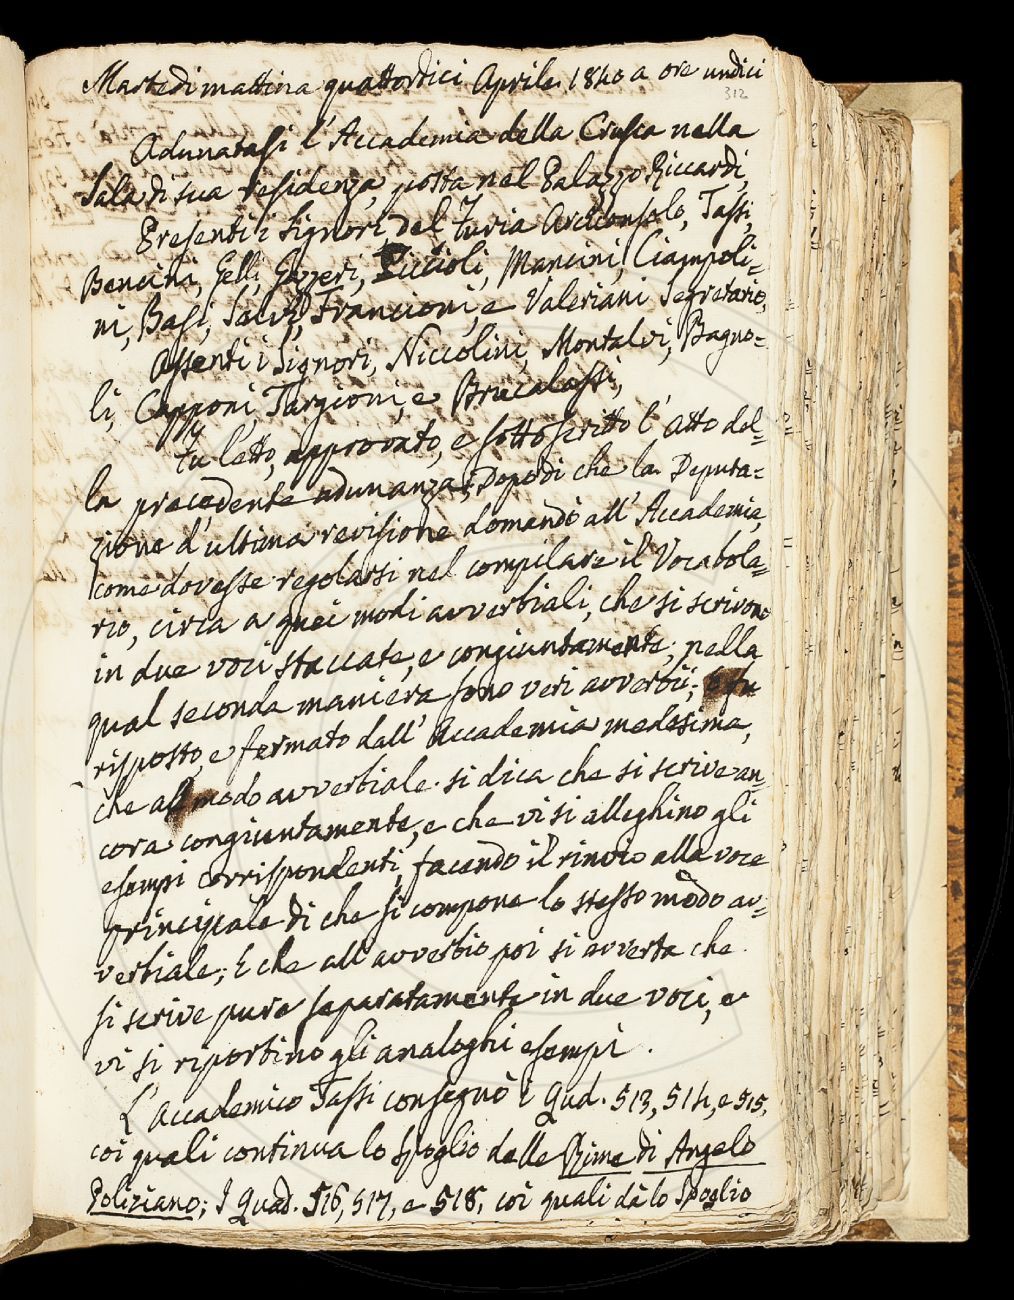 Martedi mattina quattordici Aprile 1840 a ore undici
312
Adunatasi l'Accademia della Crusca nella
Sala di sua residenza, posta nel Palazzo Riccardi,
Presenti i Signori del Furia Arciconsolo, Tassi,
Bencini, Gelli, Gazzeri, Piccioli, Mancini, Ciampoli=
ni, Basi, Salvi, Francioni, e Valeriani Segretario,
Assenti i Signori, Niccolini, Montalvi, Bagno=
li, Capponi, Targioni, e Brucalassi,
Fu letto, approvato, e sottoscritto l'atto del=
la precedente adunanza; Dopodi che la Deputa=
zione d'ultima revisione domandò all'Accademia,
come dovesse regolarsi nel compilare il Vocabola=
rio, circa a quei modi avverbiali, che si scrivono
in due voci staccate, e congiuntamente, nella
qual seconda maniera sono veri avverbii; e fu
risposto, e fermato dall'Accademia medesima,
che al modo avverbiale si dica che si scrive an=
cora congiuntamente, e che vi si alleghino gli
esempi corrispondenti, facendo il rinvio alla voce
principale di che si compone lo stesso modo av=
verbiale; E che all'avverbio poi si avverta che
si scrive pure separatamente in due voci, e
vi si riportino gli analoghi esempi.
L'Accademico Tassi consegnò i Quad. 513, 514, e 515,
coi quali continua lo spoglio delle Rime di Angelo
Poliziano; I Quad. 516, 517, e 518, coi quali dà lo Spoglio